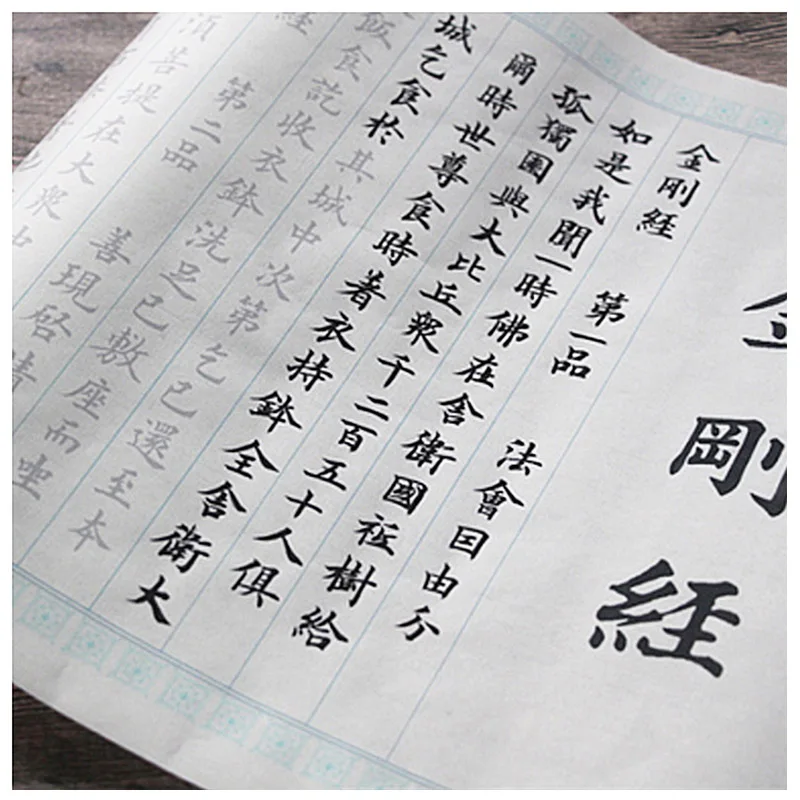 金剛經
金剛經 第一品 法會囙由分
如是我聞一時佛在舍衛國祇樹給
孤獨園與大比丘眾千二百五十人俱
爾時世尊食時著衣持鉢全舍衛大
城乞食於其城中次第乞已還至本
飯食訖收衣鉢洗足已敷座而坐
經 第二品 善現啓請
須菩提在大眾